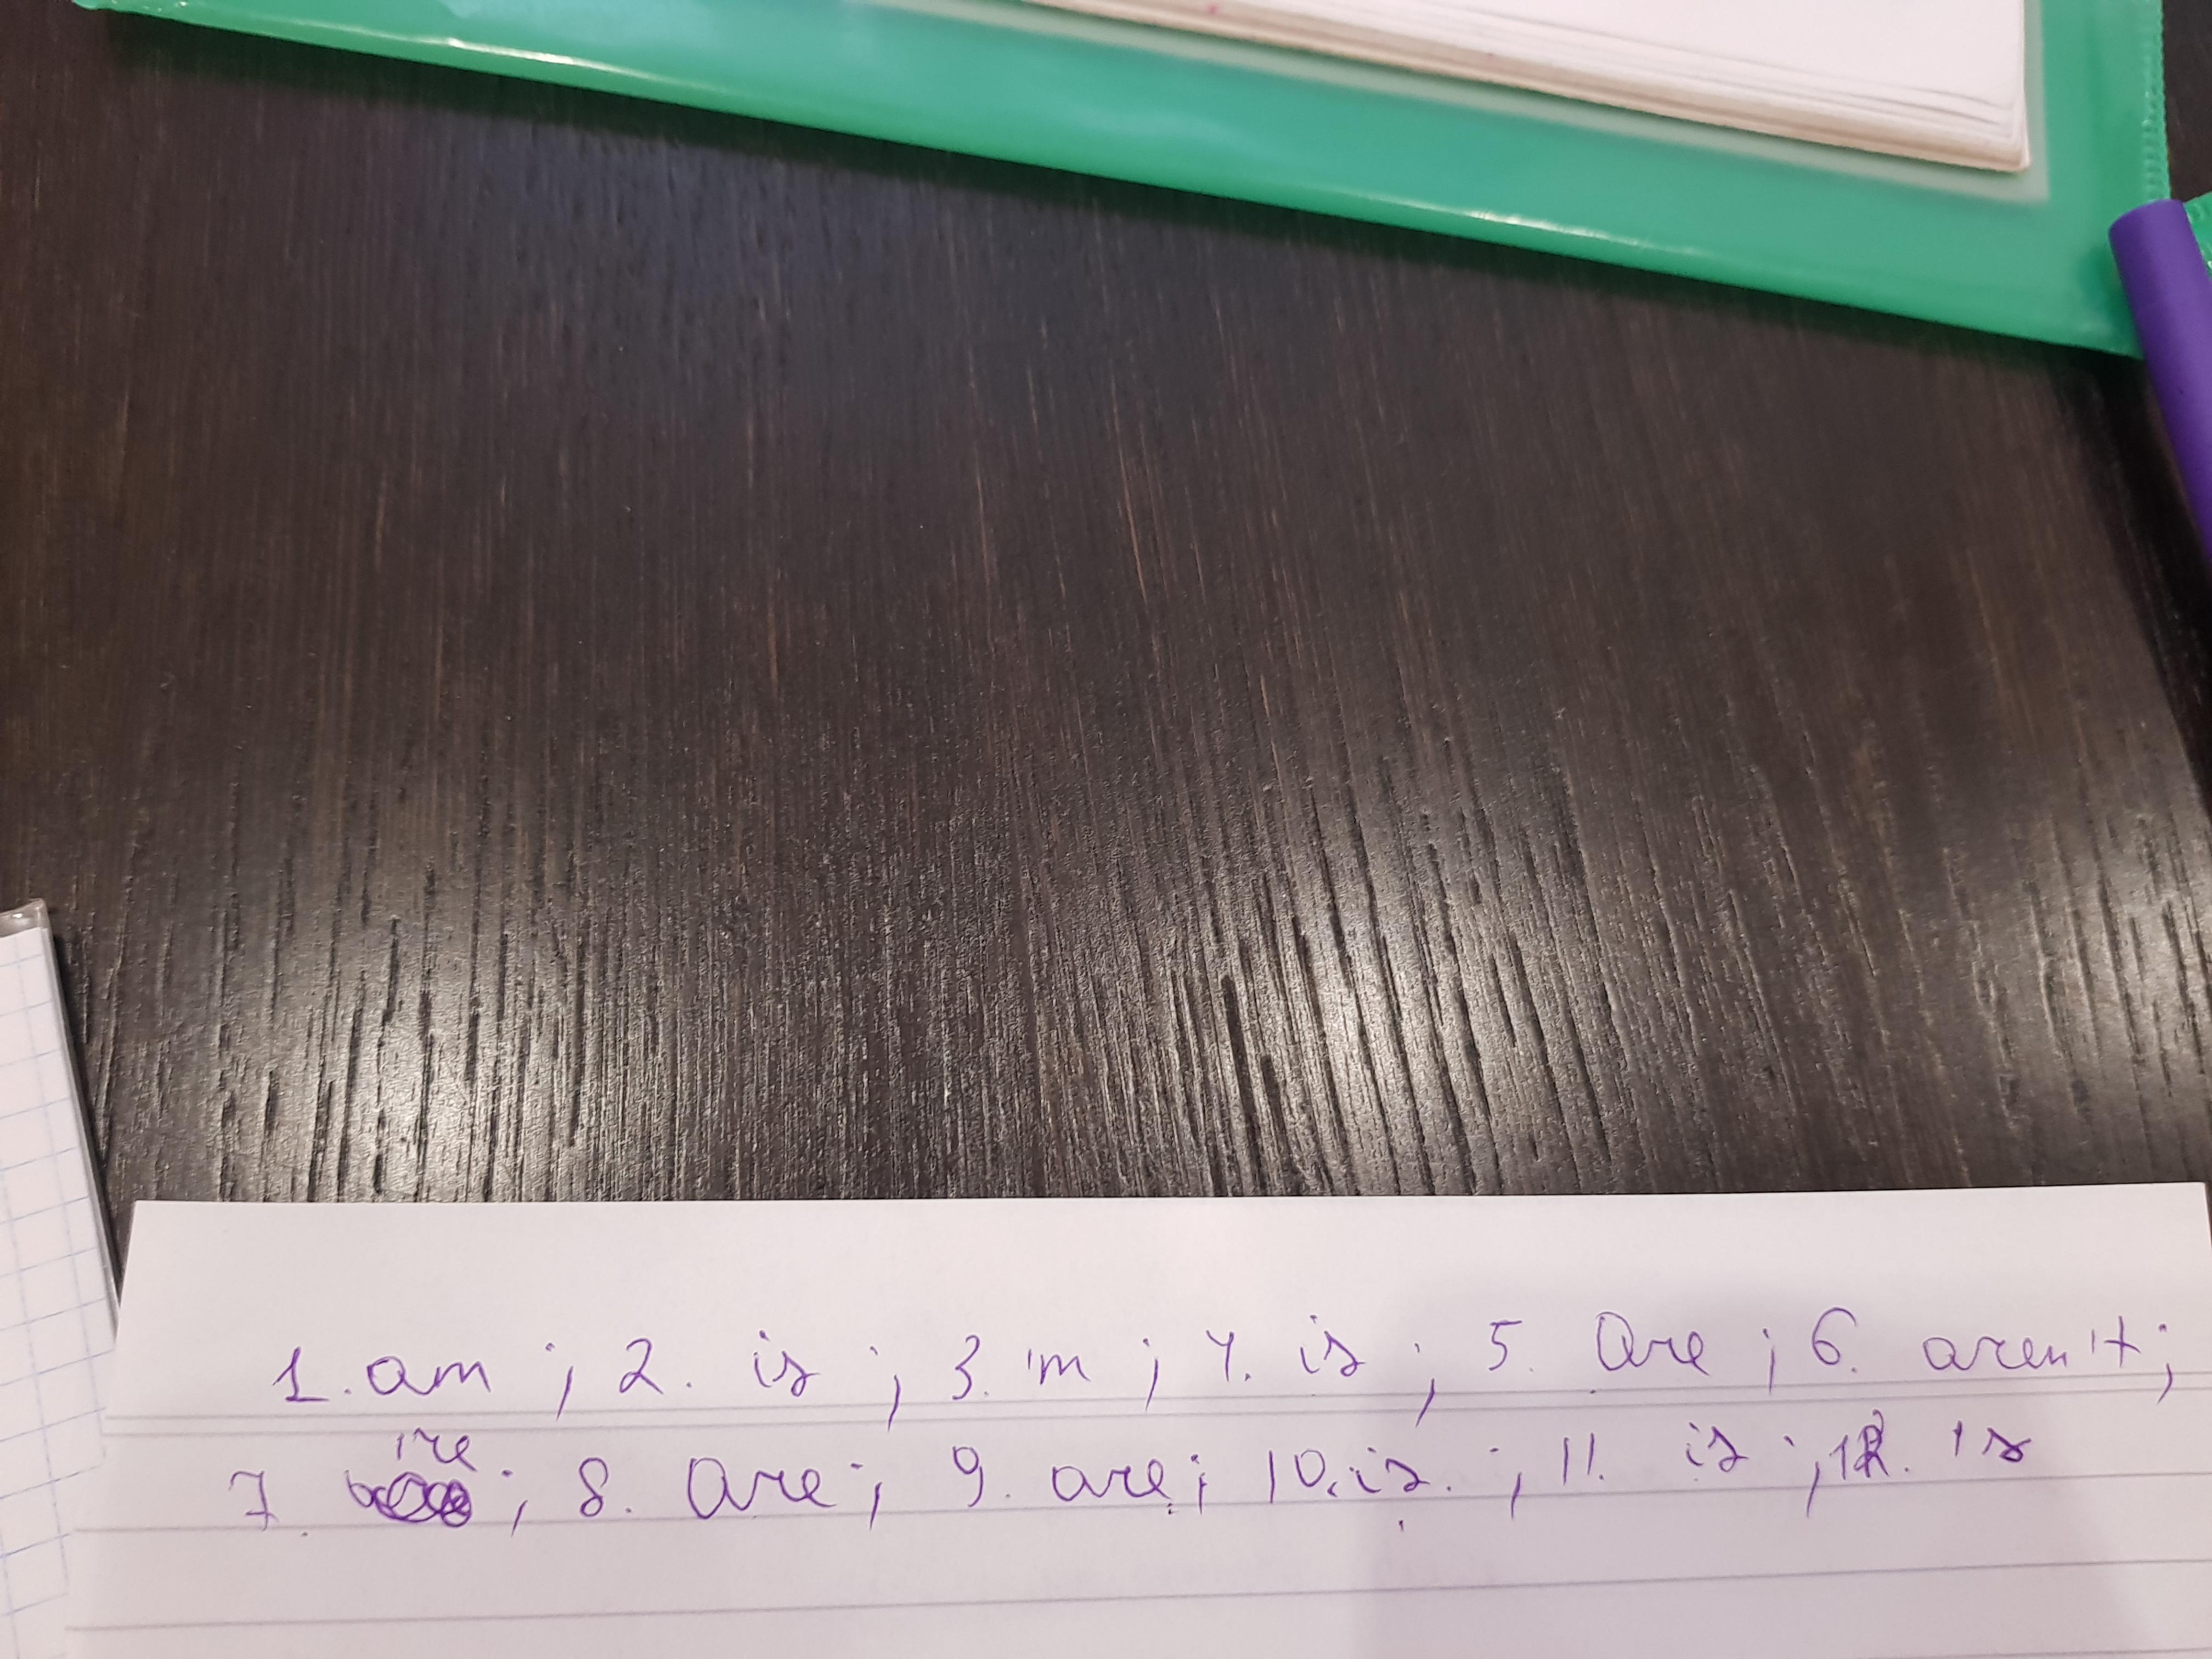 1. am ; 2. is ; 3. 'm ; 4. is ; 5. Are ; 6. aren't ;
7. 're ; 8. Are ; 9. are ; 10. is. ; 11. is ; 12. is